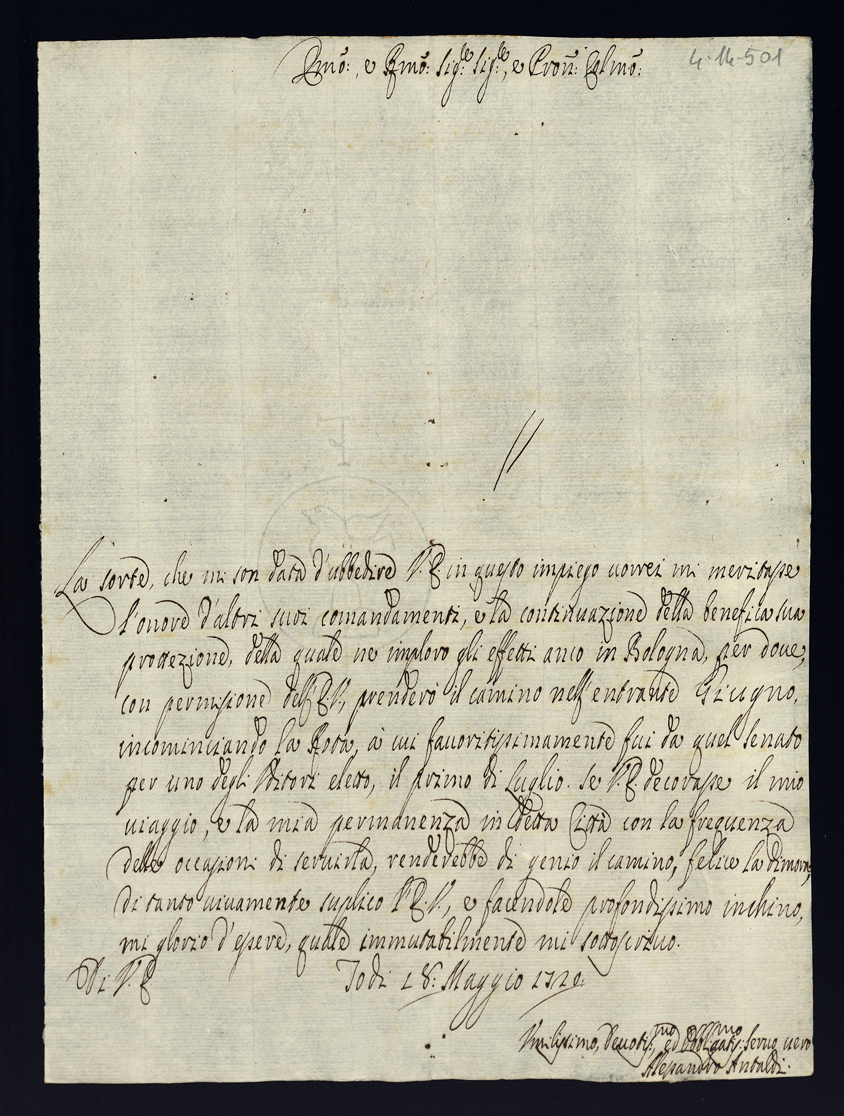 4-14-501
Emo:, e Rmo: Sig.re Sig.re, e Pron: Colmo:
La sorte, che mi son data d'ubbedire V.E in questo impiego vorrei mi meritasse
l'onore d'altri suoi comandamenti, e la continuazione della benefica sua
protezione, della quale ne imploro gli effetti anco in Bologna, per dove,
con permisione dell'E.V, prenderò il camino nell'entrante Giugno,
incominciando la Rota, à cui favoritissimamente fui da quel Senato
per uno degli Uditori eletto, il primo di Luglio. Se V.E. decorasse il mio
viaggio, e la mia permanenza in detta Città con la frequenza
delle occasioni di servirla, renderebbe di genio il camino, felice la dimora;
di tanto vivamente suplico l'E.V, e facendole profondissimo inchino,
mi glorio d'essere, quale immutabilmente mi sottoscrivo.
Di V.E Todi 18: Maggio 1720:
Umilissimo, Devotis:mo, ed Obbligatis:mo Servo vero
Alessandro Antaldi